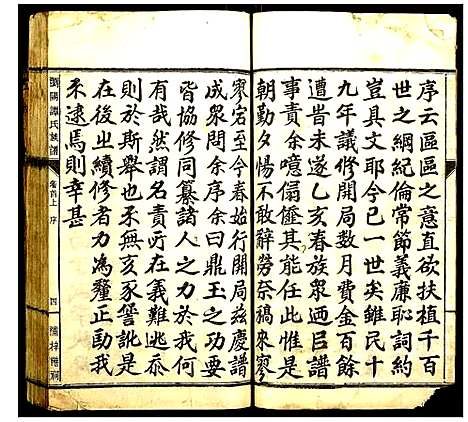 序云區區之意直欲扶植千百
世之綱紀倫常節義廉恥詞約
豈具文耶今已一世矣雖民十
九年議修開局數月費金百餘
遭昔未遂乙亥春族眾迺曰鼎
事責余余噫偈饉其能任此惟有
朝勤夕惕不敢辭勞奈稿來寥
寥宕至今春始行開局茲慶譜
成眾問余序余曰鼎玉之功居
皆協修同纂諸人之力於我何
有哉然謂名責所在義難逃忝
則於斯舉也不無亥豕訾訛是
在後之續修者力為釐正勖我
不逮焉則幸甚
瀏陽譚氏族譜
卷首上 序
四